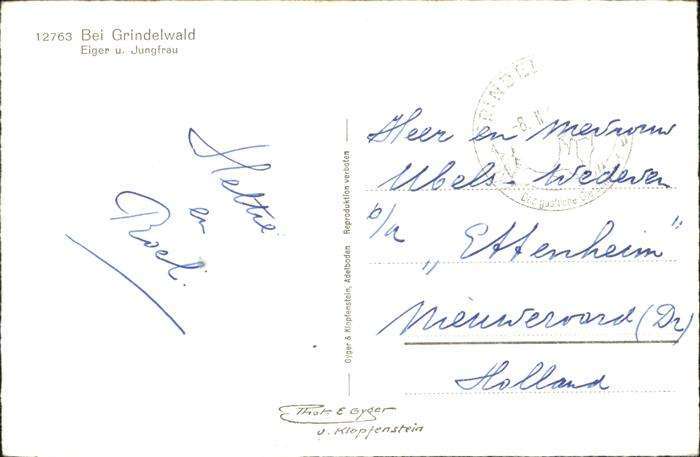 12763 Bei Grindelwald
Eiger u. Jungfrau
Hettie
en
Roel.
Gyger & Klopfenstein, Adelboden Reproduktion verboten
Heer en Mevrouw
Ubels-Wederen
b/a „Ettenheim"
Nieuweroord (Dr)
Holland
Phot. E Gyger
u. Klopfenstein